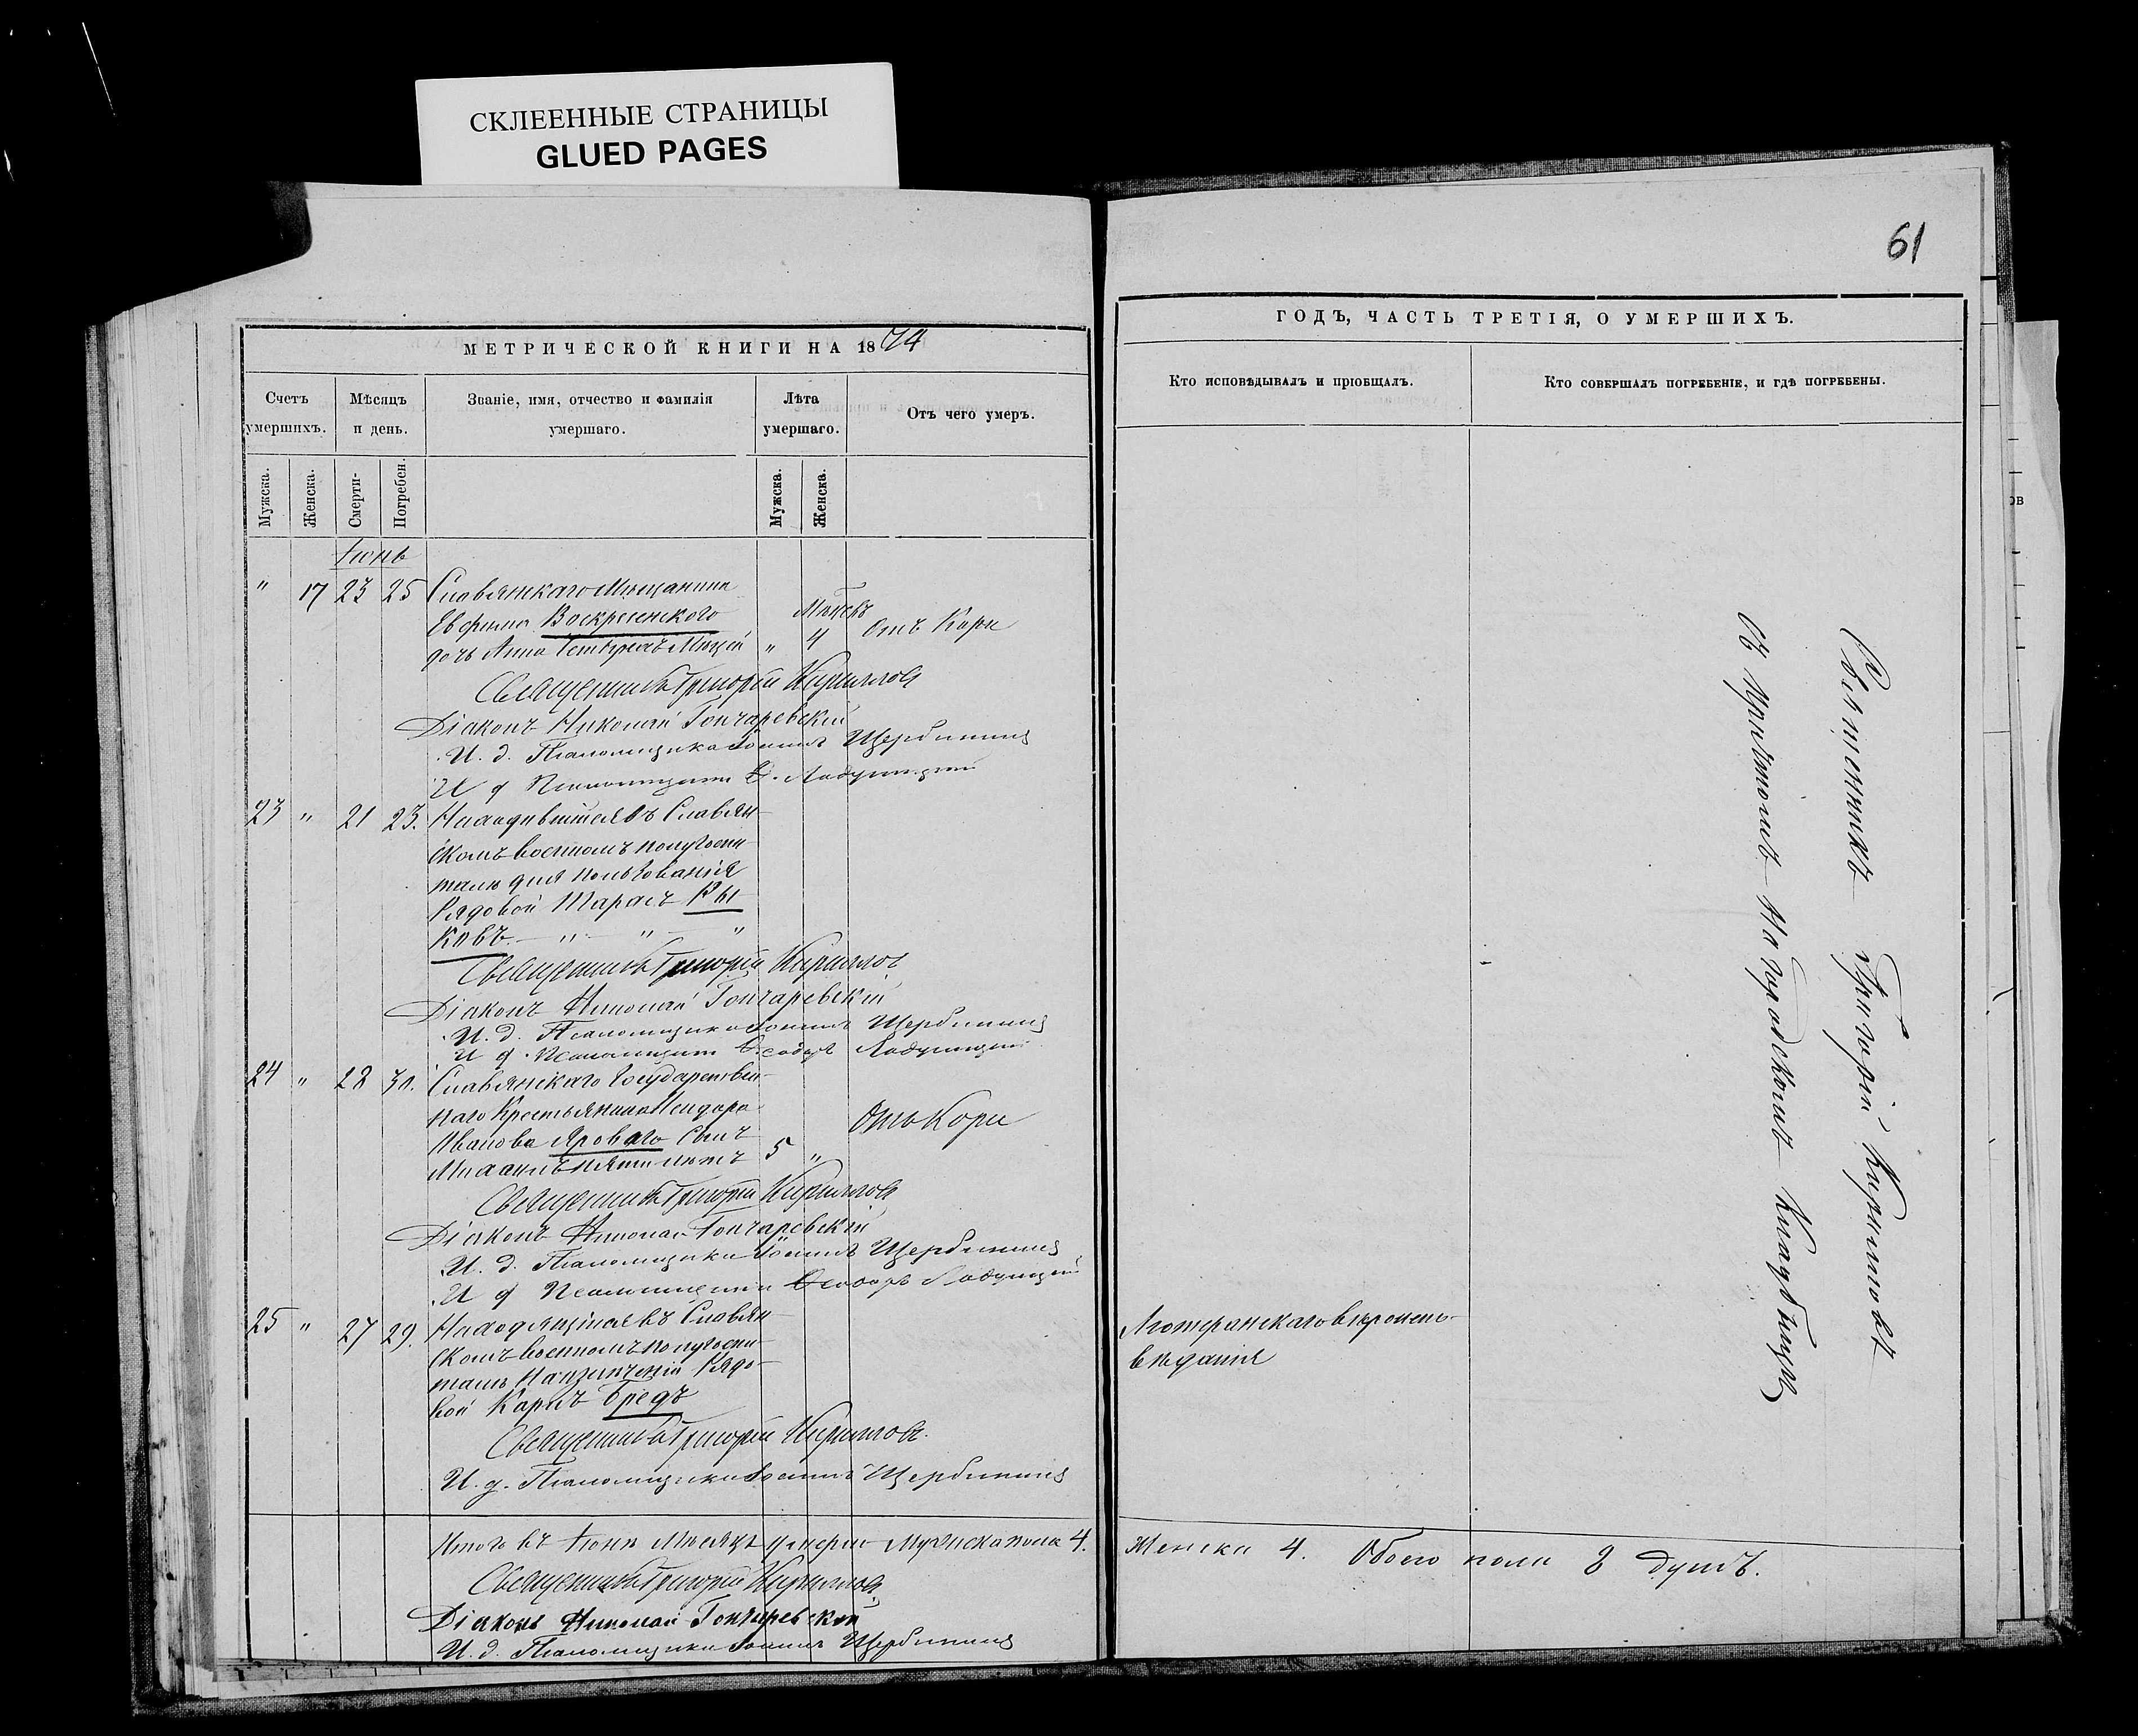 СКЛЕЕННЫЕ СТРАНИЦЫ
GLUED PAGES
61
МЕТРИЧЕСКОЙ КНИГИ НА 1874
Счетъ умершихъ.
Мѣсяцъ и день.
Званіе, имя, отчество и фамилія умершаго.
Лѣта умершаго.
Отъ чего умеръ.
Мужска.
Женска.
Смерти-
Погребен.
Мужска.
Женска.
Іюнь
" 17 23 25 Славянскаго Мѣщанина
Ефима Воскресенскаго
дочь Анна " 4 Отъ Кори
Священникъ Григорій Кирилловъ
Діаконъ Николай Гончаревскій
И. д. Псаломщика Щербининъ
И д Псаломщика Ѳ.
23 " 21 23. Находившійся въ Славян-
скомъ военномъ полугоспи
талѣ для пользованія
Рядовой Тарасъ Ры
ковъ. — " — " — "
Священникъ Григорій Кирилловъ
Діаконъ Николай Гончаревскій
И. д. Псаломщика Щербининъ
И д. Псаломщика Ѳеодоръ
24 " 28 30. Славянскаго Государствен-
наго Крестьянина
Иванова Яроваго Сынъ
Михаилъ пяти лѣтъ 5 " Отъ Кори
Священникъ Григорій Кирилловъ
Діаконъ Николай Гончаревскій
И. д. Псаломщика Щербининъ
И д Псаломщика Ѳеодоръ
25 " 27 29. Находящійся въ Славян-
скомъ военномъ полугоспи-
талѣ Рядо-
вой Карлъ Бредъ
Священникъ Григорій Кирилловъ.
И. д. Псаломщика Щербининъ
Итого въ Іюнѣ Мѣсяцѣ умерло Мужска пола 4.
Священникъ Григорій Кирилловъ
Діаконъ Николай Гончаревскій
И. д. Псаломщика Щербининъ
ГОДЪ, ЧАСТЬ ТРЕТІЯ, О УМЕРШИХЪ.
Кто исповѣдывалъ и пріобщалъ.
Кто совершалъ погребеніе, и гдѣ погребены.
Лютеранскаго вѣроиспо-
вѣданія
Священникъ Григорій Кирилловъ
Съ причтомъ На городскомъ кладбищѣ
Женска 4. Обоего пола 8 душъ.